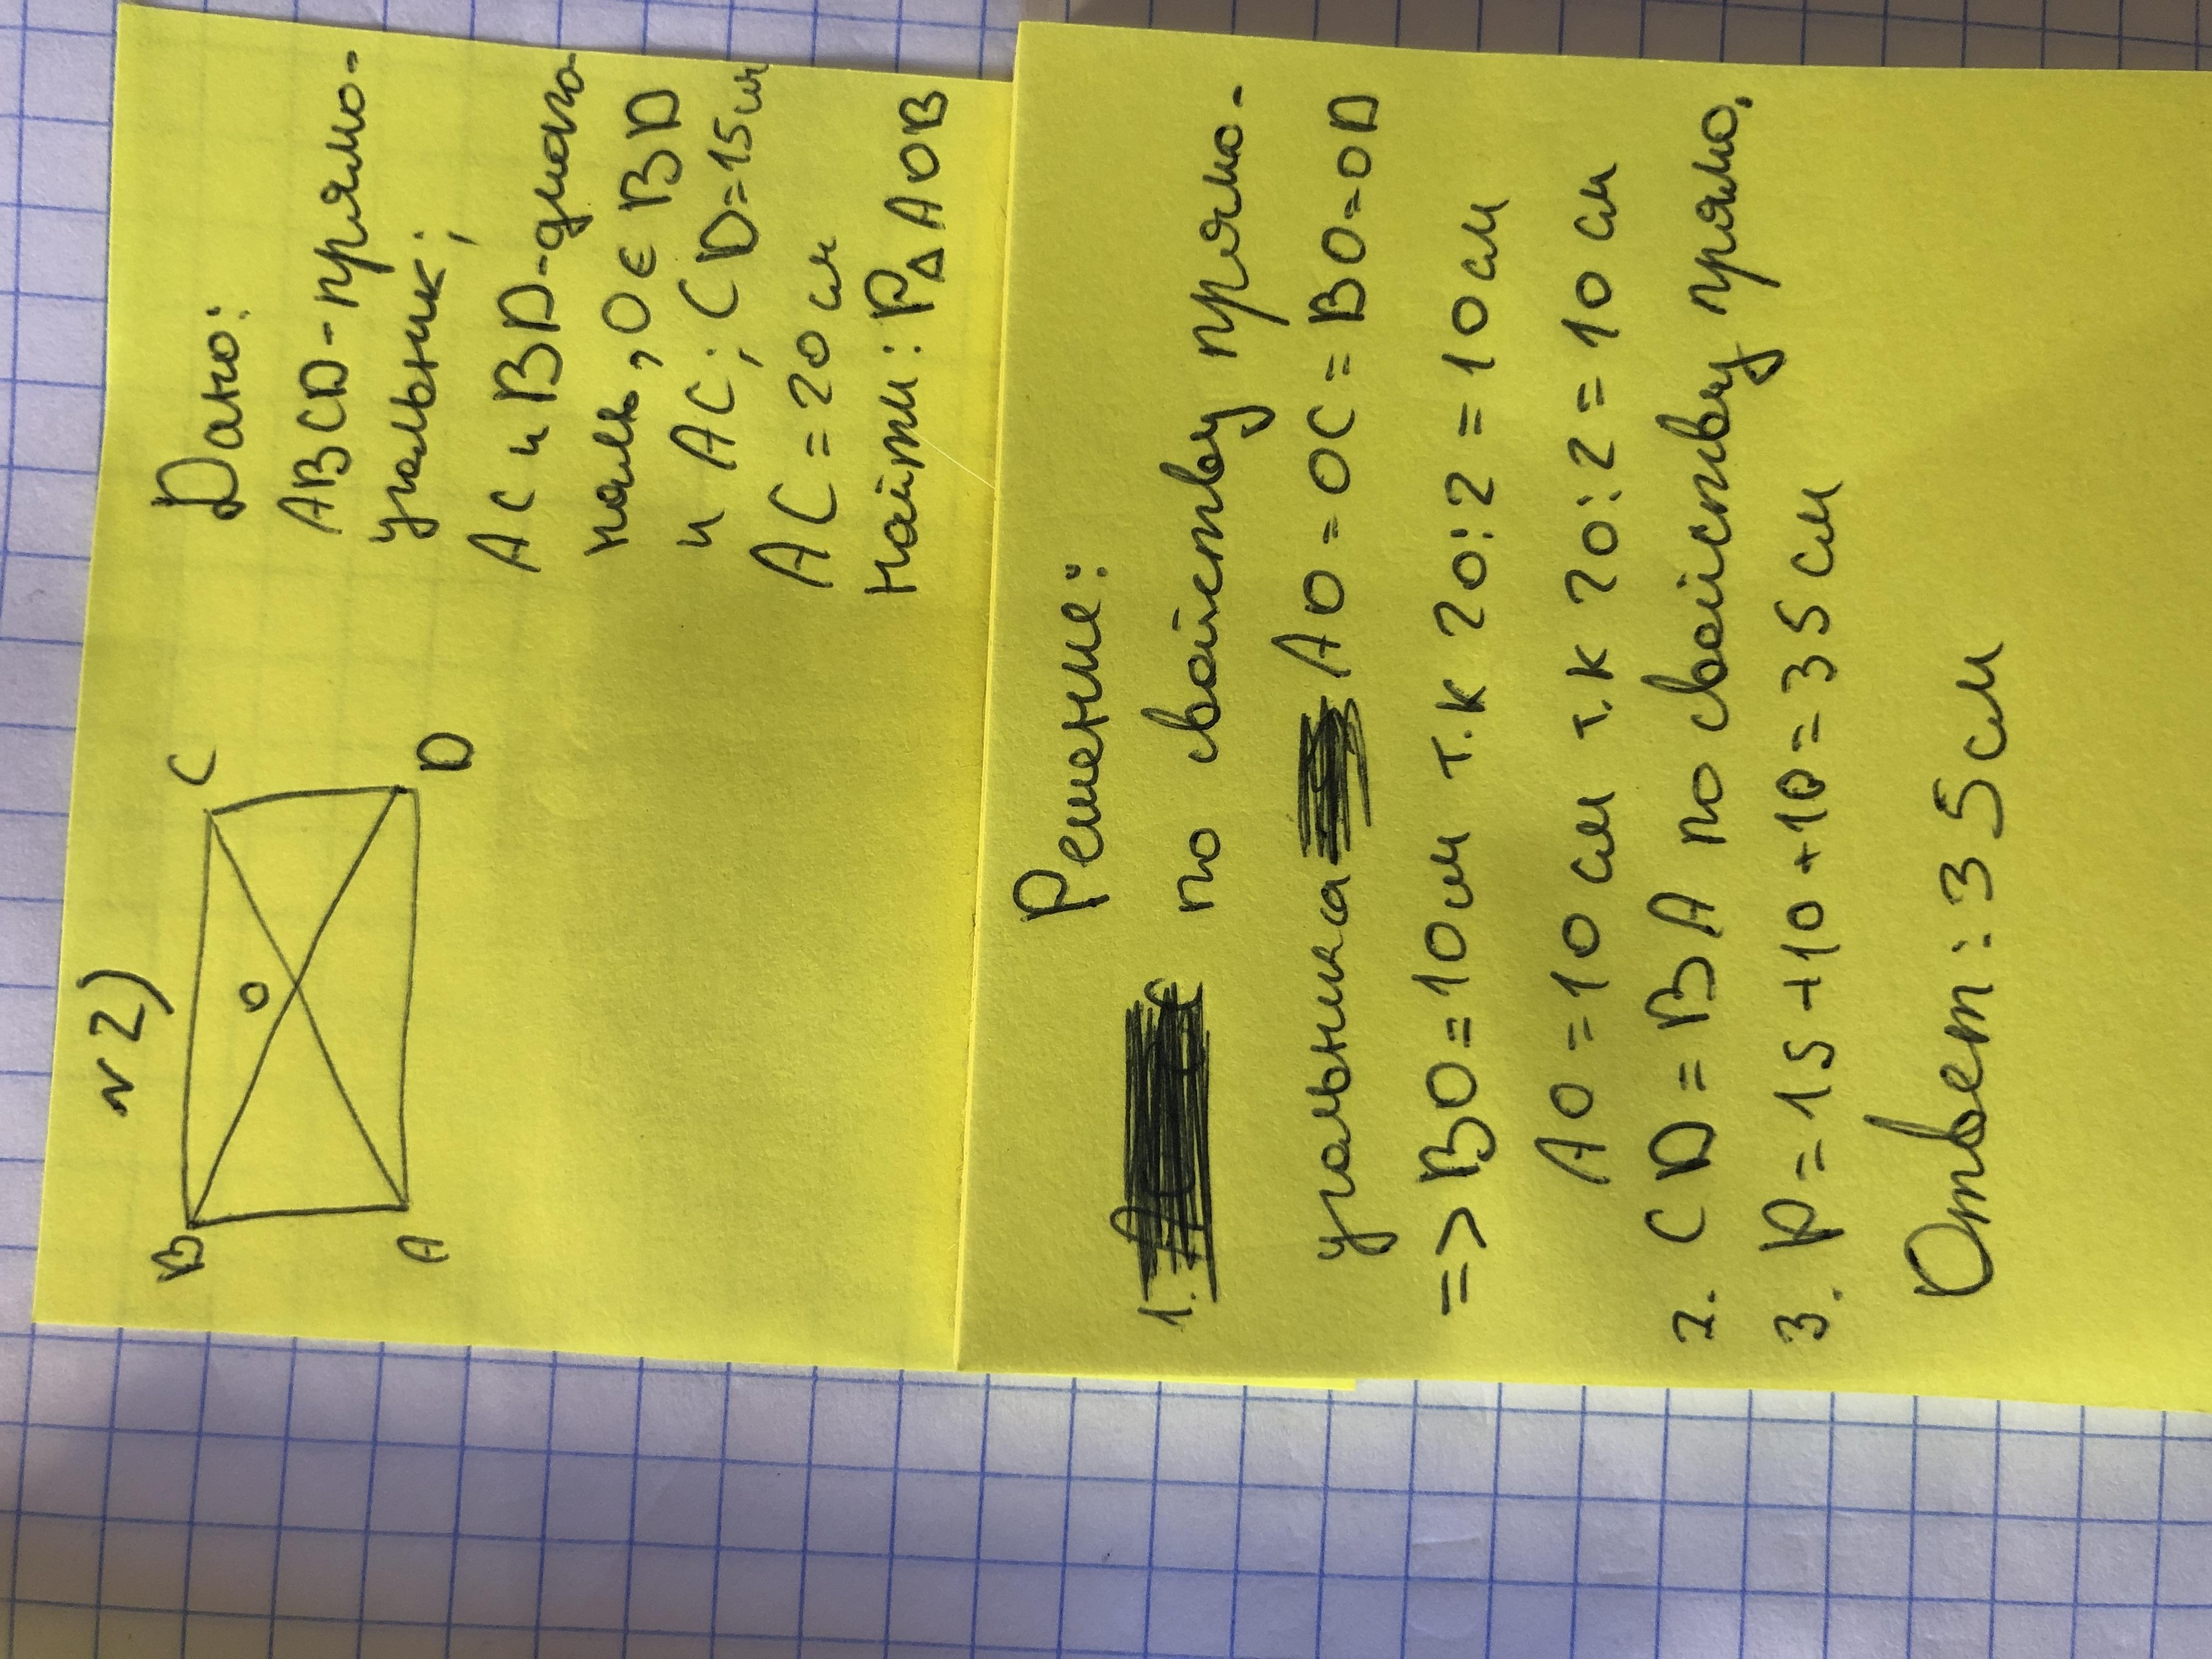 №2)
B
C
O
A
D
Дано:
ABCD-прямо-
угольник;
AC и BD-диаго
наль, O ∈ BD
и AC; CD=15см
AC=20 см
Найти: P△AOB
Решение:
1. по свойству прямо-
угольника AO=OC=BO=OD
=> BO=10см т.к 20:2=10см
AO=10 см т.к 20:2=10 см
2. CD=BA по свойству прямо.
3. P=15+10+10=35 см
Ответ: 35 см